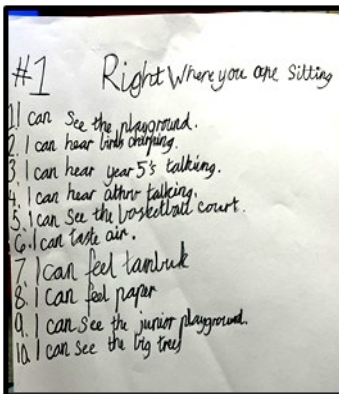 #1 Right Where you are Sitting
1. I can See the playground.
2. I can hear birds chirping.
3 I can hear year 5's talking.
4. I can hear talking.
5. I can See the basketball court.
6. I can taste air.
7. I can feel tambuk
8. I can feel paper
9. I can see the junior playground.
10. I can see the big tree